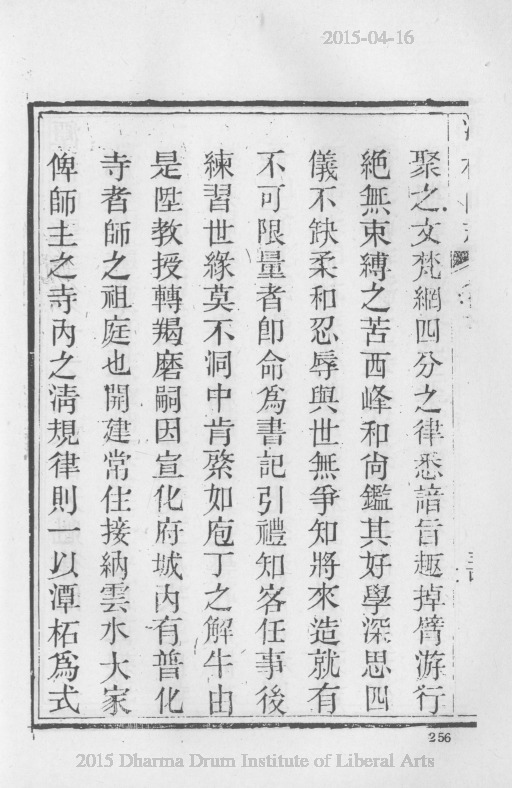 2015-04-16
聚之文梵網四分之律悉諳旨趣掉臂游行
絶無束縛之苦西峰和尙鑑其好學深思四
儀不缺柔和忍辱與世無爭知將來造就有
不可限量者卽命爲書記引禮知客任事後
練習世緣莫不洞中肯綮如庖丁之解牛由
是陞教授轉羯磨嗣因宣化府城內有普化
寺者師之祖庭也開建常住接納雲水大家
俾師主之寺內之淸規律則一以潭柘爲式
256
2015 Dharma Drum Institute of Liberal Arts